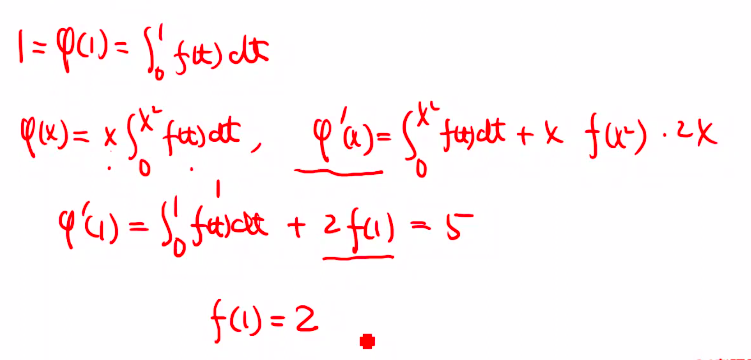 1 = φ(1) = ∫₀¹ f(t) dt
φ(x) = x ∫₀^{x²} f(t) dt , φ'(x) = ∫₀^{x²} f(t) dt + x f(x²) · 2x
1
φ'(1) = ∫₀¹ f(t) dt + 2 f(1) = 5
f(1) = 2